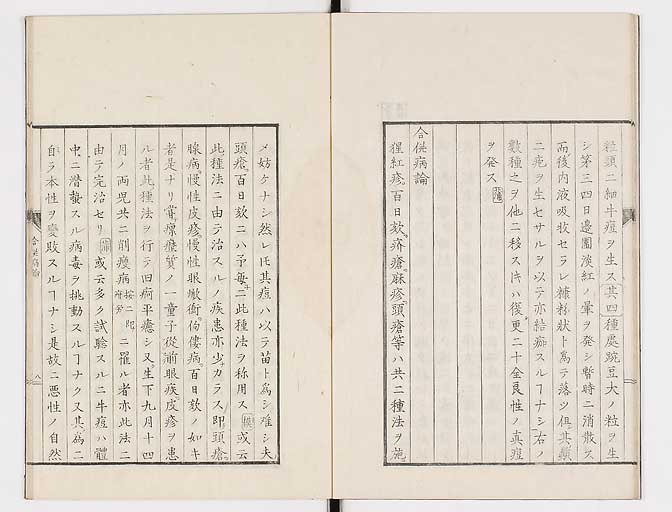 粒頭ニ細牛痘ヲ生ス其四種處豌豆大ノ粒ヲ生
シ第三四日邊圍淡紅ノ暈ヲ発シ暫時ニ消散ス
而後内液吸收セラレ糠粉狀ト為テ落ツ但其癜
ニ疤ヲ生セサルヲ以テ亦結痂スルヿナシ右ノ
數種之ヲ他ニ移ス片ハ復更ニ十全良性ノ真痘
ヲ発ス
合併病論
猩紅疹百日欬疥瘡麻疹頭瘡等ハ共ニ種法ヲ施
メ妨ケナシ然レ𪜈其痘ハ以テ苗ト為シ難シ夫
頭瘡百日欬ニハ予毎ニ此種法ヲ称用ス 或云
此種法ニ由テ治スルノ疾患亦少カラス即頭瘡
腺病慢性皮疹慢性眼瞼衝佝僂病百日欬ノ如キ
者是ナリ嘗瘰癧質ノ一童子從前眼疾皮疹ヲ患
ル者此種法ヲ行テ旧痾平癒シ又生下九月十四
月ノ両児共ニ削瘦病 ニ罹ル者亦此法ニ
由テ完治セリ 或云多ク試驗スルニ牛痘ハ體
中ニ潜蟄スル病毒ヲ挑動スルヿナク又其為ニ
自ラ本性ヲ變敗スルヿナシ是故ニ悪性ノ自然
合併病論
八